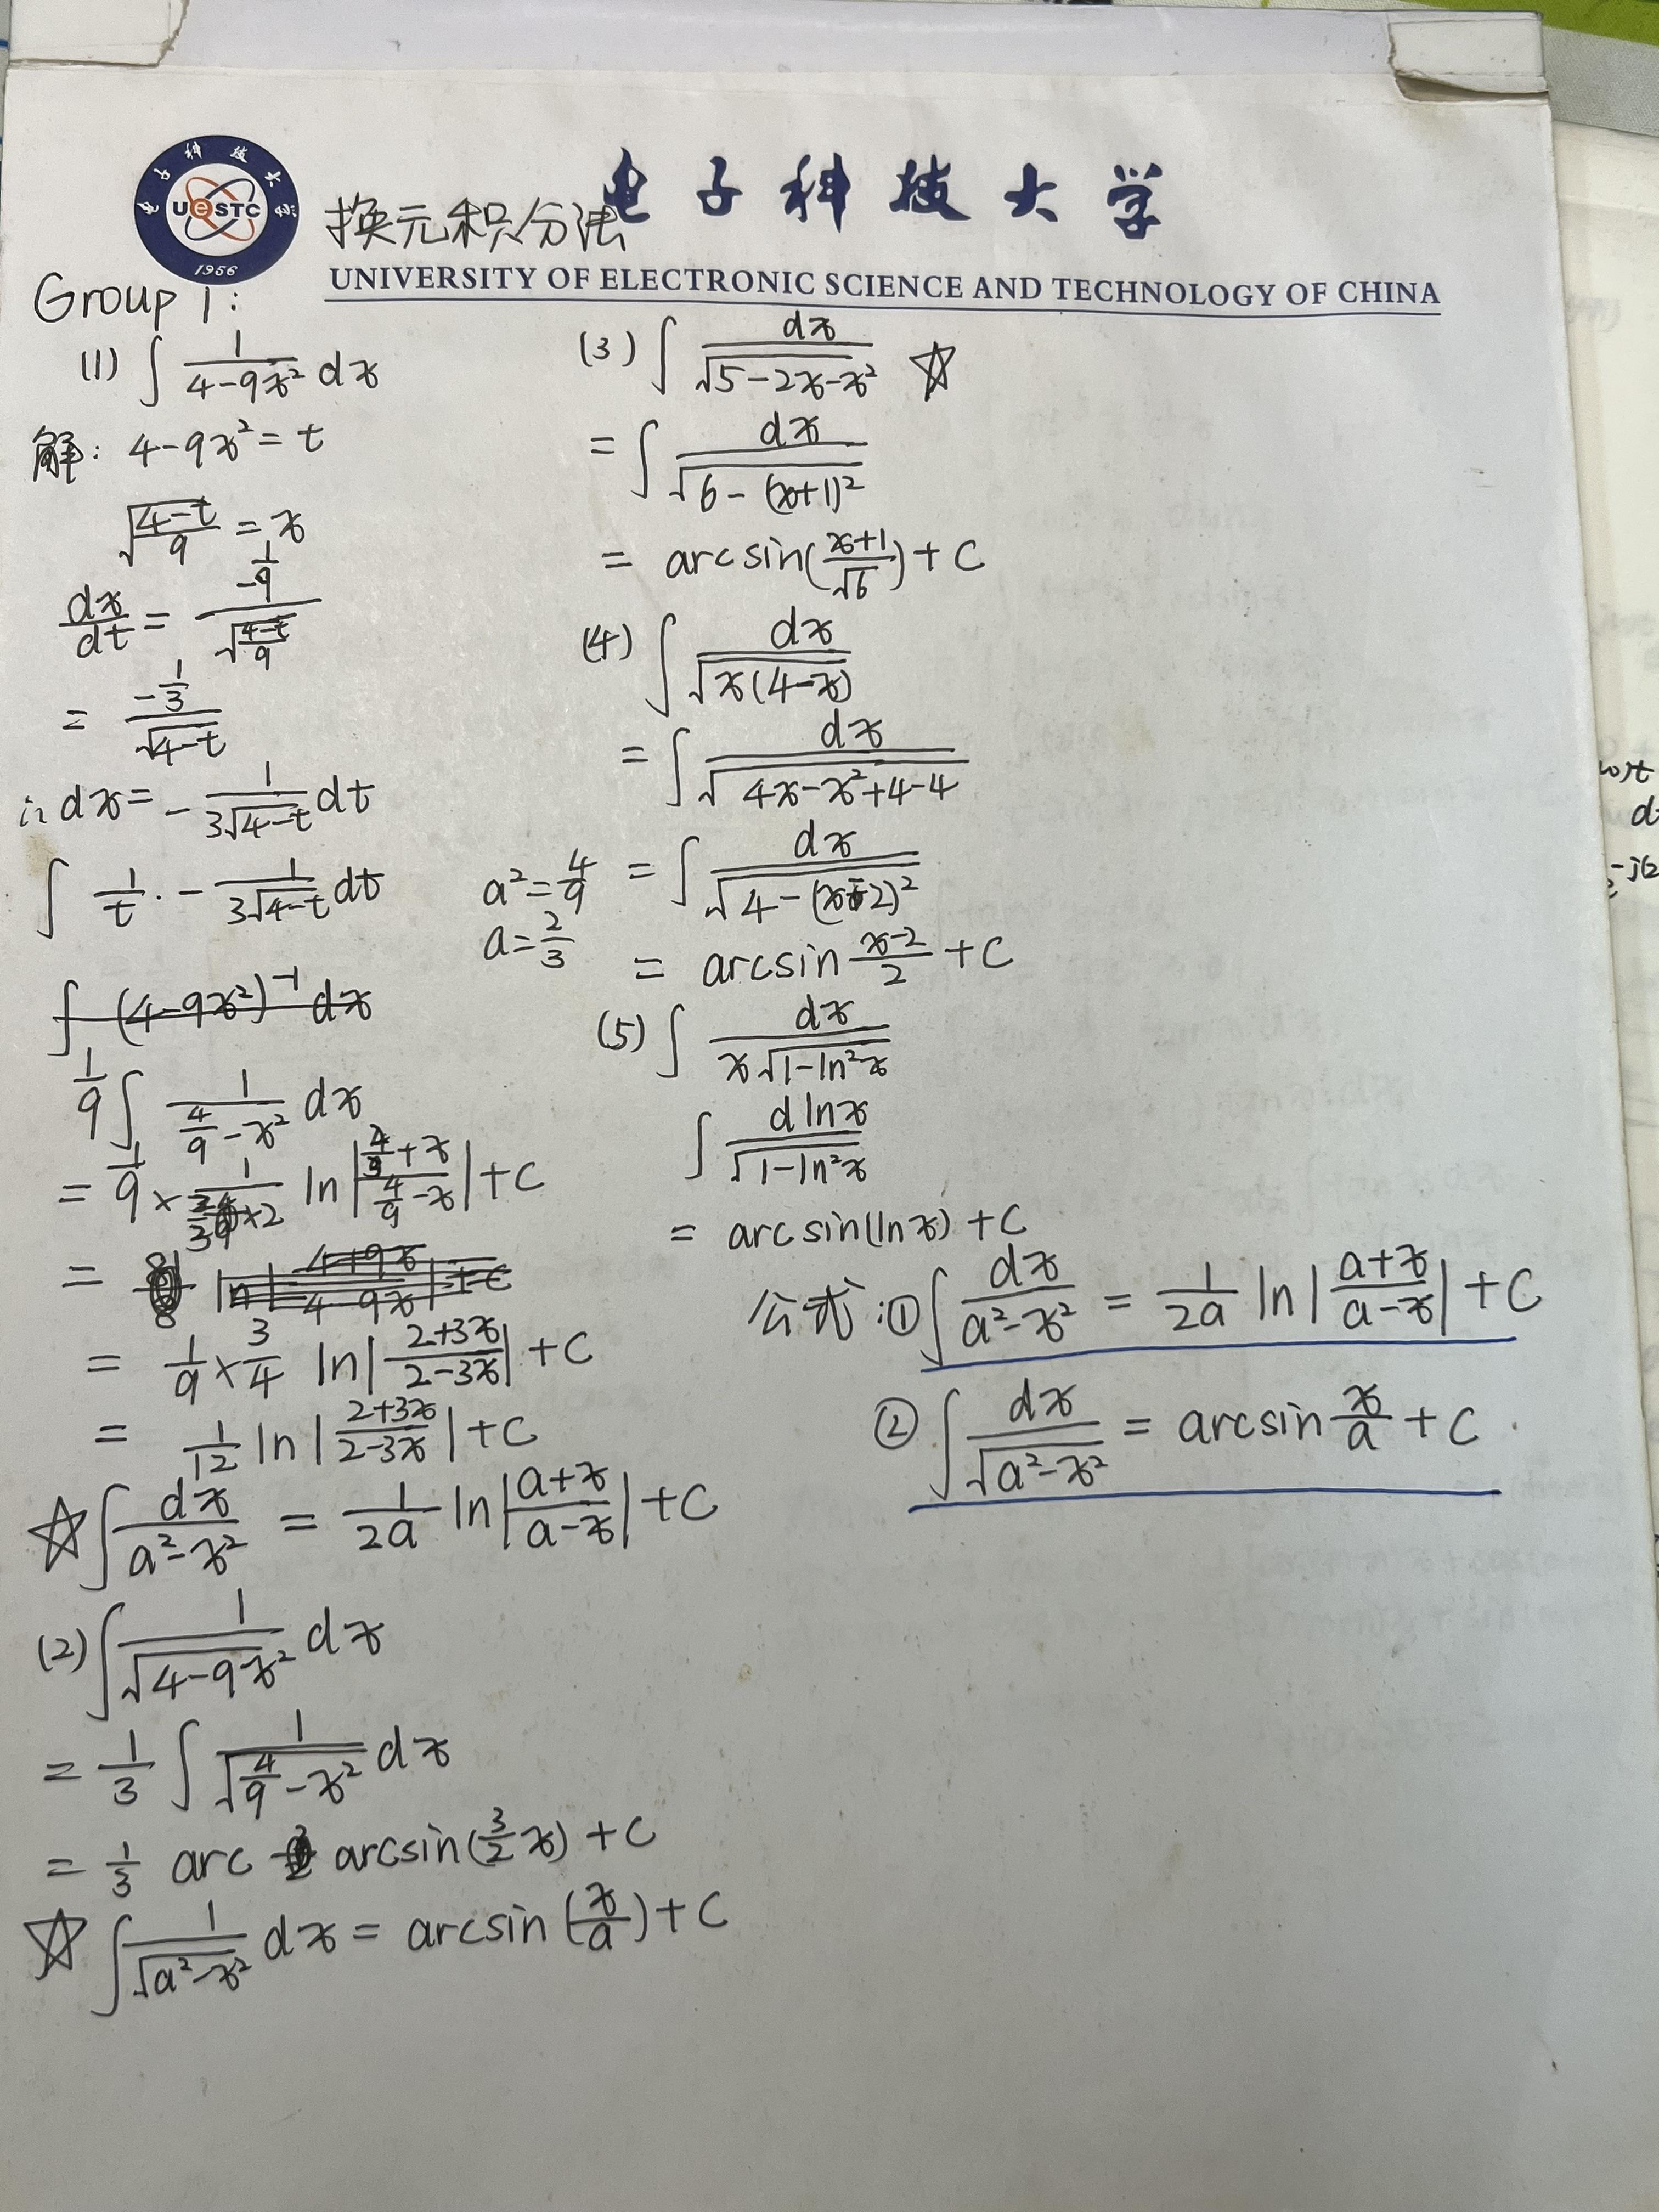 电子科技大学
UESTC
1956
换元积分法
电子科技大学
UNIVERSITY OF ELECTRONIC SCIENCE AND TECHNOLOGY OF CHINA
Group 1:
(1) ∫ 1/(4-9x²) dx
解: 4-9x² = t
√((4-t)/9) = x
dx/dt = (-1/9)/√((4-t)/9)
= (-1/3)/√(4-t)
∴ dx = - 1/(3√(4-t)) dt
∫ 1/t · - 1/(3√(4-t)) dt
a² = 4/9
a = 2/3
∫ (4-9x²)⁻¹ dx
1/9 ∫ 1/(4/9 - x²) dx
= 1/9 × 1/(2/3 ×2) ln|(4/9 + x)/(4/9 - x)| + C
= ln|(4+9x)/(4-9x)| + C
= 1/9 × 3/4 ln|(2+3x)/(2-3x)| + C
= 1/12 ln|(2+3x)/(2-3x)| + C
☆ ∫ dx/(a²-x²) = 1/(2a) ln|(a+x)/(a-x)| + C
(2) ∫ 1/√(4-9x²) dx
= 1/3 ∫ 1/√(4/9 - x²) dx
= 1/3 arc arcsin(3/2 x) + C
☆ ∫ 1/√(a²-x²) dx = arcsin(x/a) + C
(3) ∫ dx/√(5-2x-x²) ☆
= ∫ dx/√(6-(x+1)²)
= arcsin((x+1)/√6) + C
(4) ∫ dx/√(x(4-x))
= ∫ dx/√(4x-x²+4-4)
= ∫ dx/√(4-(x-2)²)
= arcsin (x-2)/2 + C
(5) ∫ dx/(x√(1-ln²x))
∫ d lnx/√(1-ln²x)
= arcsin(lnx) + C
公式: ① ∫ dx/(a²-x²) = 1/(2a) ln|(a+x)/(a-x)| + C
② ∫ dx/√(a²-x²) = arcsin x/a + C